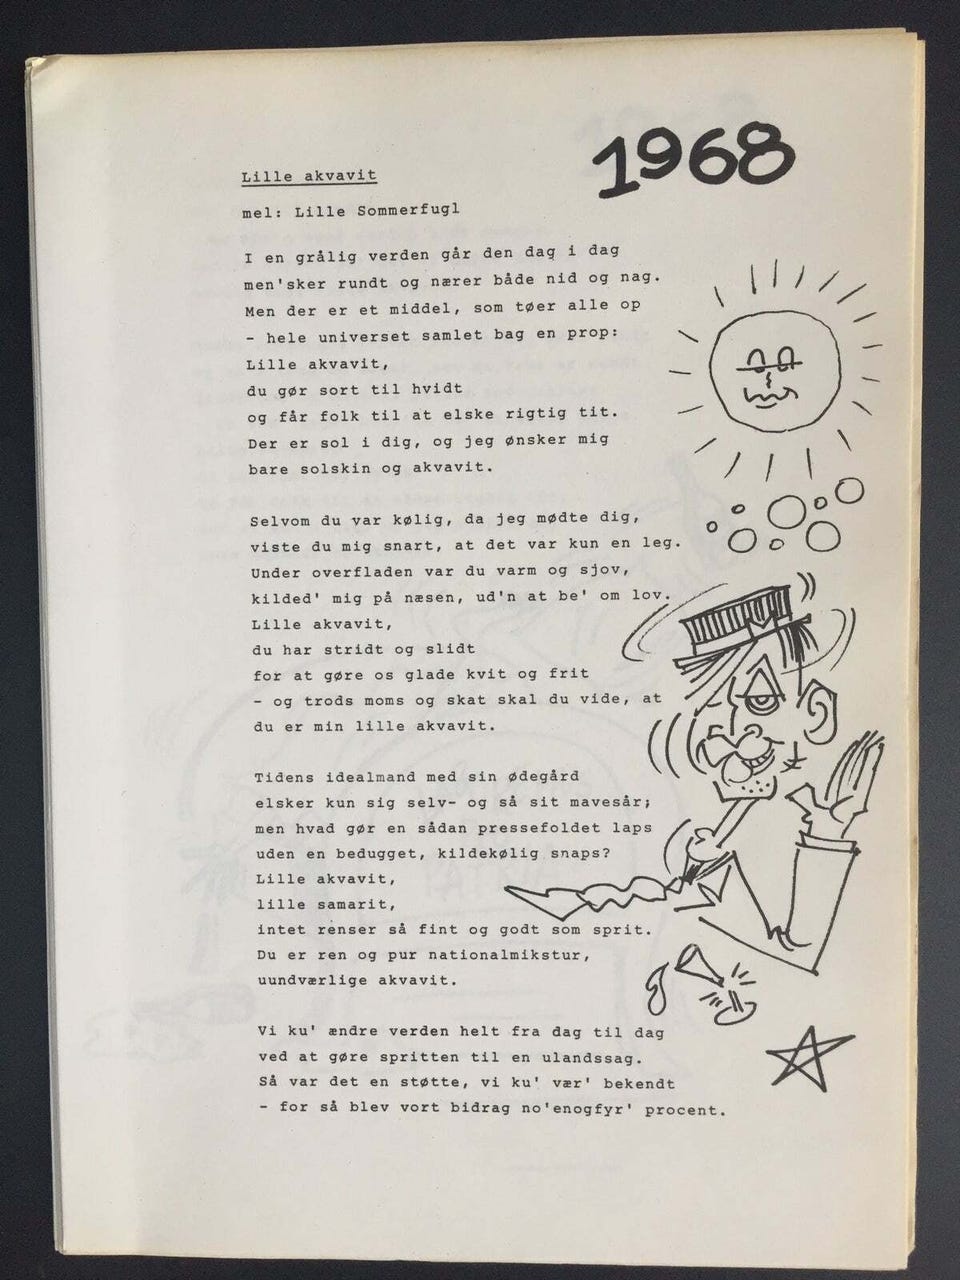 1968
Lille akvavit
mel: Lille Sommerfugl
I en grålig verden går den dag i dag
men'sker rundt og nærer både nid og nag.
Men der er et middel, som tøer alle op
- hele universet samlet bag en prop:
Lille akvavit,
du gør sort til hvidt
og får folk til at elske rigtig tit.
Der er sol i dig, og jeg ønsker mig
bare solskin og akvavit.
Selvom du var kølig, da jeg mødte dig,
viste du mig snart, at det var kun en leg.
Under overfladen var du varm og sjov,
kilded' mig på næsen, ud'n at be' om lov.
Lille akvavit,
du har stridt og slidt
for at gøre os glade kvit og frit
- og trods moms og skat skal du vide, at
du er min lille akvavit.
Tidens idealmand med sin ødegård
elsker kun sig selv- og så sit mavesår;
men hvad gør en sådan pressefoldet laps
uden en bedugget, kildekølig snaps?
Lille akvavit,
lille samarit,
intet renser så fint og godt som sprit.
Du er ren og pur nationalmikstur,
uundværlige akvavit.
Vi ku' ændre verden helt fra dag til dag
ved at gøre spritten til en ulandssag.
Så var det en støtte, vi ku' vær' bekendt
- for så blev vort bidrag no'enogfyr' procent.